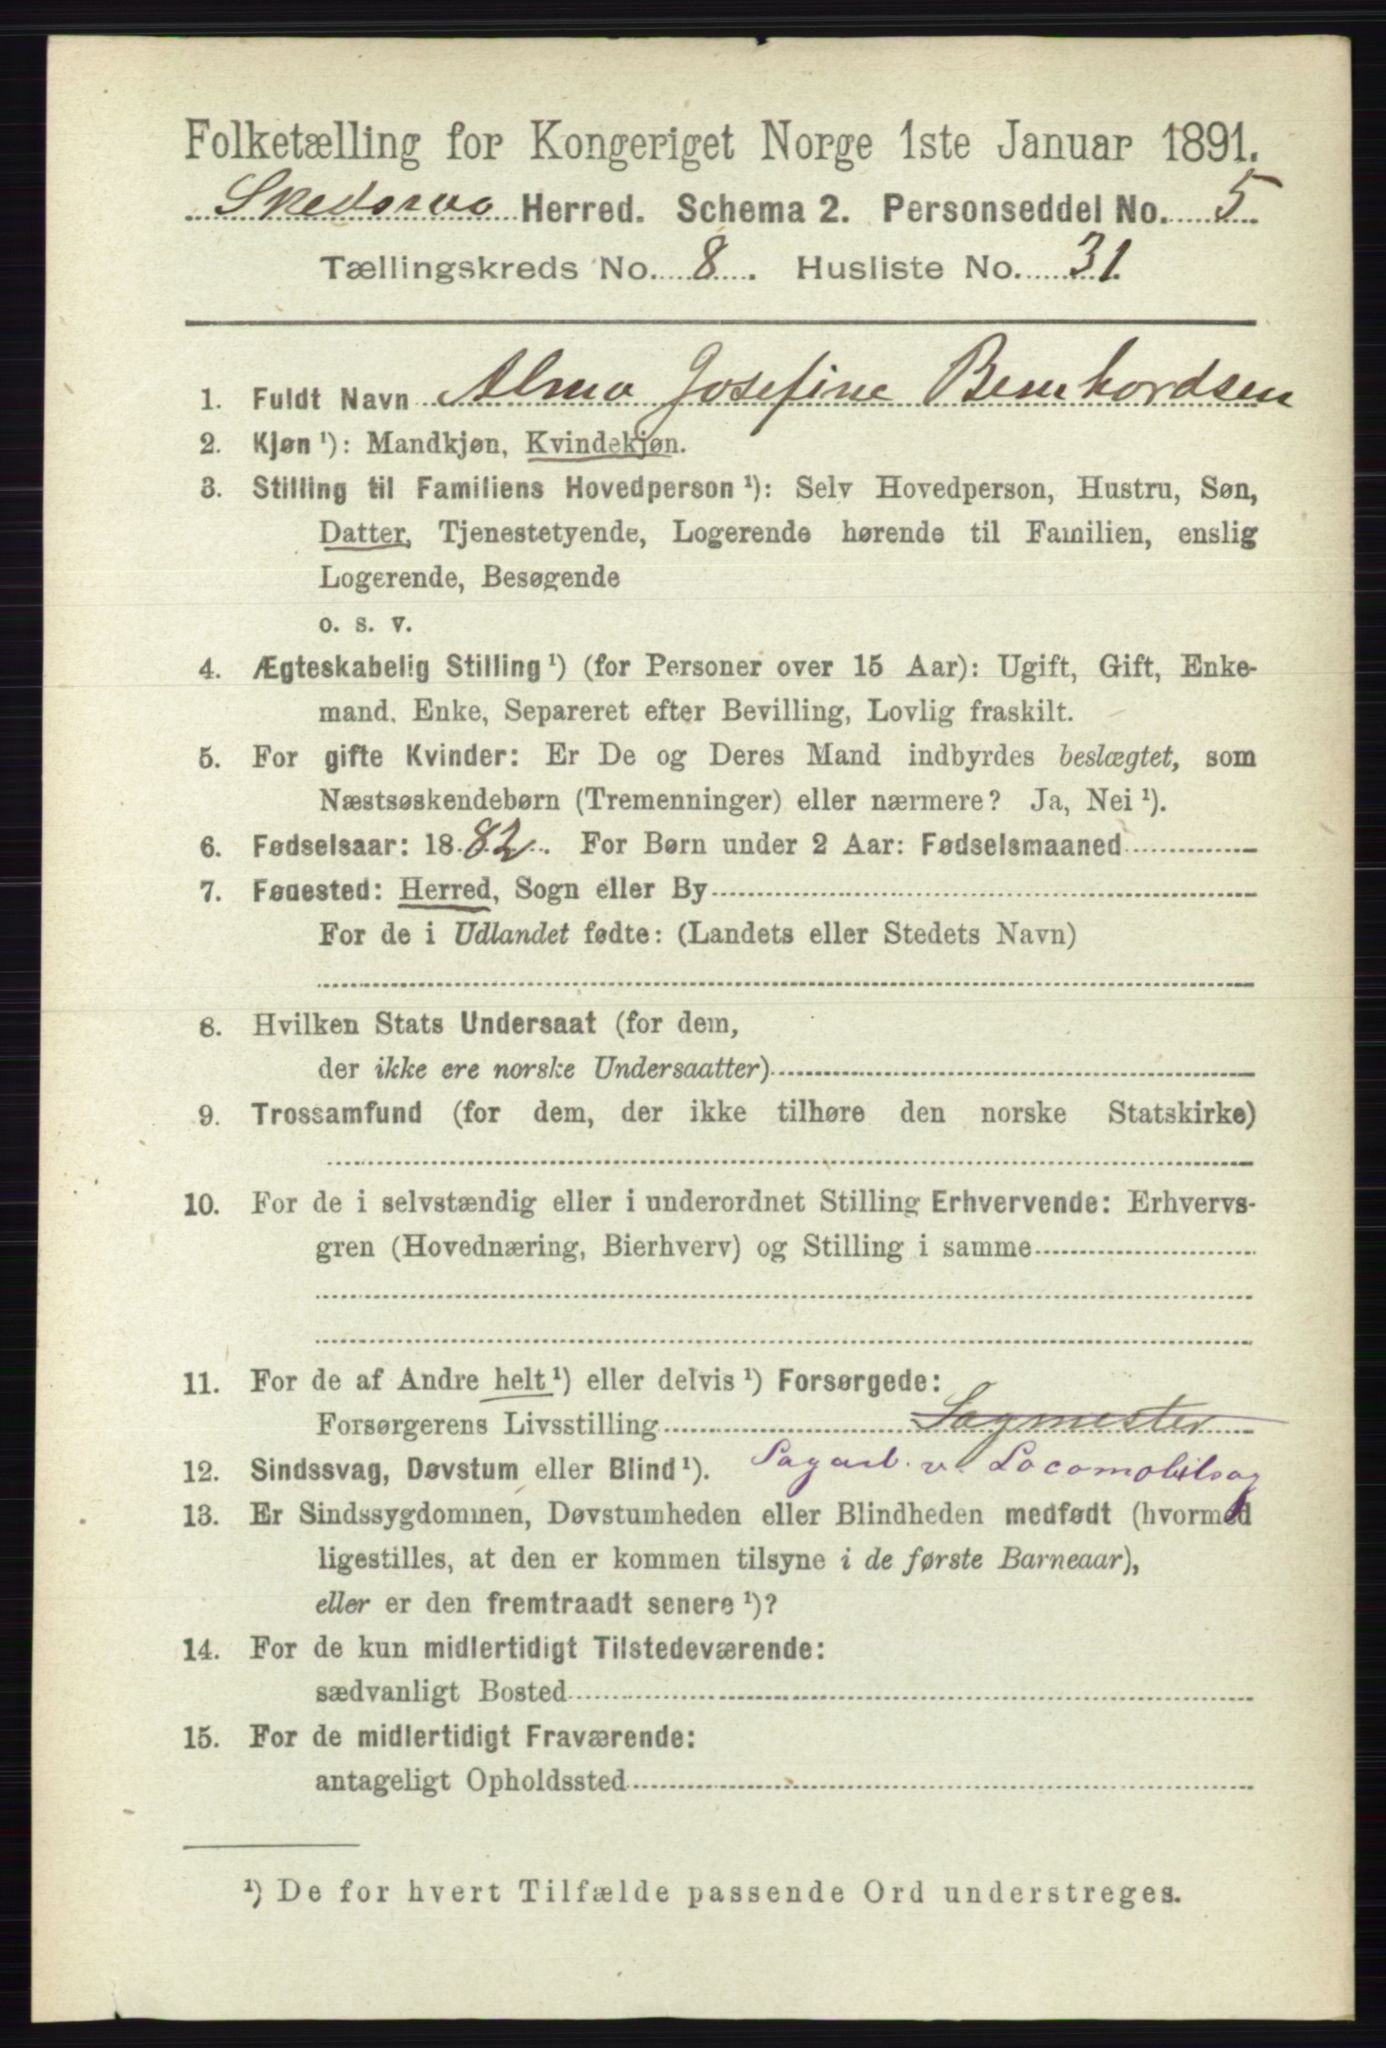 Folketælling for Kongeriget Norge 1ste Januar 1891.
Skedsmo Herred. Schema 2. Personseddel No. 5
Tællingskreds No. 8. Husliste No. 31.
1. Fuldt Navn Alma Josefine Bernhardsen
2. Kjøn ¹): Mandkjøn, Kvindekjøn.
3. Stilling til Familiens Hovedperson ¹): Selv Hovedperson, Hustru, Søn,
Datter, Tjenestetyende, Logerende hørende til Familien, enslig
Logerende, Besøgende
o. s. v.
4. Ægteskabelig Stilling ¹) (for Personer over 15 Aar): Ugift, Gift, Enke-
mand, Enke, Separeret efter Bevilling, Lovlig fraskilt.
5. For gifte Kvinder: Er De og Deres Mand indbyrdes beslægtet, som
Næstsøskendebørn (Tremenninger) eller nærmere? Ja, Nei ¹).
6. Fødselsaar: 1882. For Børn under 2 Aar: Fødselsmaaned
7. Fødested: Herred, Sogn eller By
For de i Udlandet fødte: (Landets eller Stedets Navn)
8. Hvilken Stats Undersaat (for dem,
der ikke ere norske Undersaatter)
9. Trossamfund (for dem, der ikke tilhøre den norske Statskirke)
10. For de i selvstændig eller i underordnet Stilling Erhvervende: Erhvervs-
gren (Hovednæring, Bierhverv) og Stilling i samme
11. For de af Andre helt ¹) eller delvis ¹) Forsørgede:
Forsørgerens Livsstilling Sagmester
12. Sindssvag, Døvstum eller Blind ¹). Sagarb. v. Locomobilsag
13. Er Sindssygdommen, Døvstumheden eller Blindheden medfødt (hvormed
ligestilles, at den er kommen tilsyne i de første Barneaar),
eller er den fremtraadt senere ¹)?
14. For de kun midlertidigt Tilstedeværende:
sædvanligt Bosted
15. For de midlertidigt Fraværende:
antageligt Opholdssted
¹) De for hvert Tilfælde passende Ord understreges.